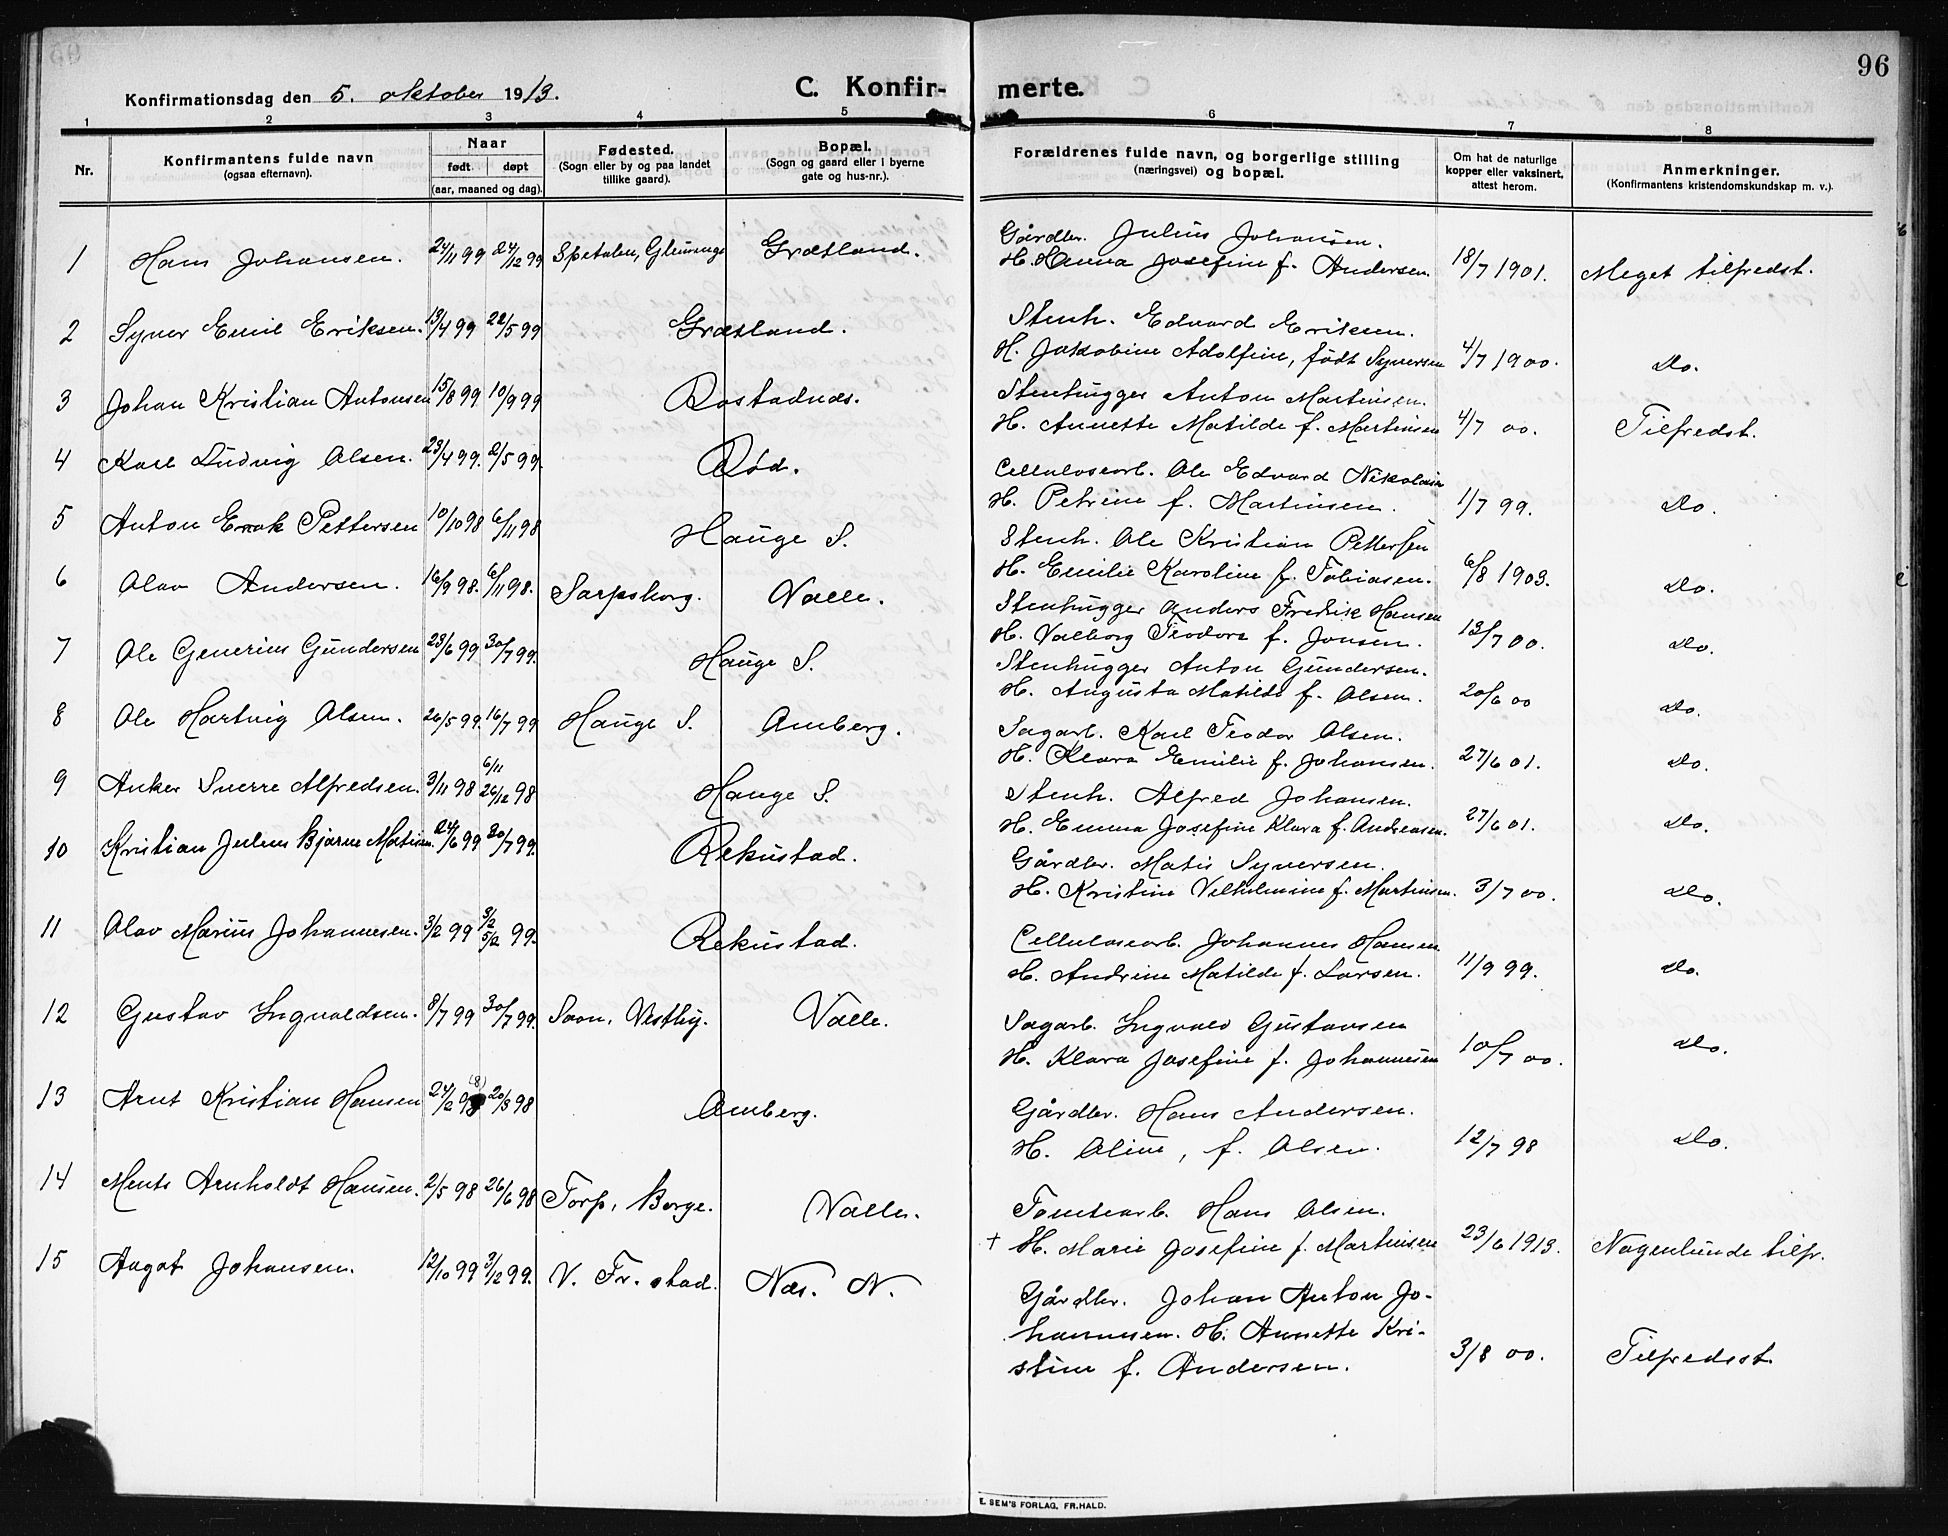 96
Konfirmationsdag den 5. oktober 1913.
C. Konfirmerte.
1 2 3 4 5 6 7 8
Nr.
Konfirmantens fulde navn
(ogsaa efternavn).
Naar
født døpt
(aar, maaned og dag).
Fødested.
(Sogn eller by og paa landet
tillike gaard).
Bopæl.
(Sogn og gaard eller i byerne
gate og hus-nr.).
Forældrenes fulde navn, og borgerlige stilling
(næringsvei) og bopæl.
Om hat de naturlige
kopper eller vaksinert,
attest herom.
Anmerkninger.
(Konfirmantens kristendomskundskap m. v.).
1 Hans Johansen. 24/11 99 24/12 99 Spetalen, Glemminge Græsland. Gårdbr. Julius Johansen.
H. Hanna Josefine f. Andersen 18/7 1901. Meget tilfredst.
2 Syver Emil Eriksen. 13/4 99 22/5 99 Græsland. Stenh. Edvard Eriksen.
H. Jakobine Adolfine, født Syversen 4/7 1900. Do.
3 Johan Kristian Antonsen 15/8 99 10/9 99 Rostadnæs. Stenhugger Anton Martinsen.
H. Annette Matilde f. Martinsen 4/7 00. Tilfredst.
4 Karl Ludvig Olsen. 23/4 99. 2/5 99. Rød. Cellulosearb. Ole Edvard Nikolais
H. Petrine f. Martinsen. 1/7 99. Do.
5 Anton Enok Pettersen 10/10 98 6/11 98 Hauge S. Stenh. Ole Kristian Pettersen
H. Emilie Karoline f. Tobiasen. 6/8 1903. Do.
6 Olav Andersen. 16/9 98. 6/11 98. Sarpsborg. Valle. Stenhugger Anders Fredrik Hansen
H. Valborg Teodora f. Jonsen. 13/7 00. Do.
7 Ole Generius Gundersen 23/6 99 30/7 99. Hauge S. Stenhugger Anton Gundersen.
H. Augusta Matilde f. Olsen. 20/6 00 Do.
8 Ole Hartvig Olsen. 26/5 99. 16/7 99 Hauge S. Omberg. Sagarb. Karl Teodor Olsen.
H. Klara Emilie f. Johansen. 27/6 01. Do.
9 Anker Sverre Alfredsen. 3/11 98 6/11 26/12 98 Hauge S. Stenh. Alfred Johansen.
H. Emma Josefine Klara f. Andreasen. 27/6 01. Do.
10 Kristian Julius Bjarne Matisen. 24/6 99 30/7 99. Rekustad. Gårdbr. Matis Syversen.
H. Kristine Vilhelmine f. Martinsen. 3/7 00. Do.
11 Olav Marius Johannesen. 3/2 99 3/2 5/2 99. Rekustad. Cellulosearb. Johannes Hansen
H. Andrine Matilde f. Larsen. 11/9 99. Do.
12 Gustav Ingvaldsen. 8/7 99 30/7 99. Soon, Vestby. Valle. Sagarb. Ingvald Gustavsen
H. Klara Josefine f. Johannesen 10/7 00. Do.
13 Arnt Kristian Hansen 24/2 98 (8) 20/3 98 Omberg. Gårdbr. Hans Andersen.
H. Oline, f. Olsen. 12/7 98 Do.
14 Ments Arnholdt Hansen. 2/5 98 26/6 98 Torp, Borge. Valle. Tomtearb. Hans Olsen.
+ H. Marie Josefine f. Martinsen 23/6 1913. Nogenlunde tilfr.
15 Aagot Johansen. 12/10 99 3/12 99. V. Fr.stad. Næs. N. Gårdbr. Johan Anton Jo-
hannesen. H. Annette Kri-
stine f. Andersen. 3/8 00. Tilfredsst.
E. SEM'S FORLAG, FR.HALD.